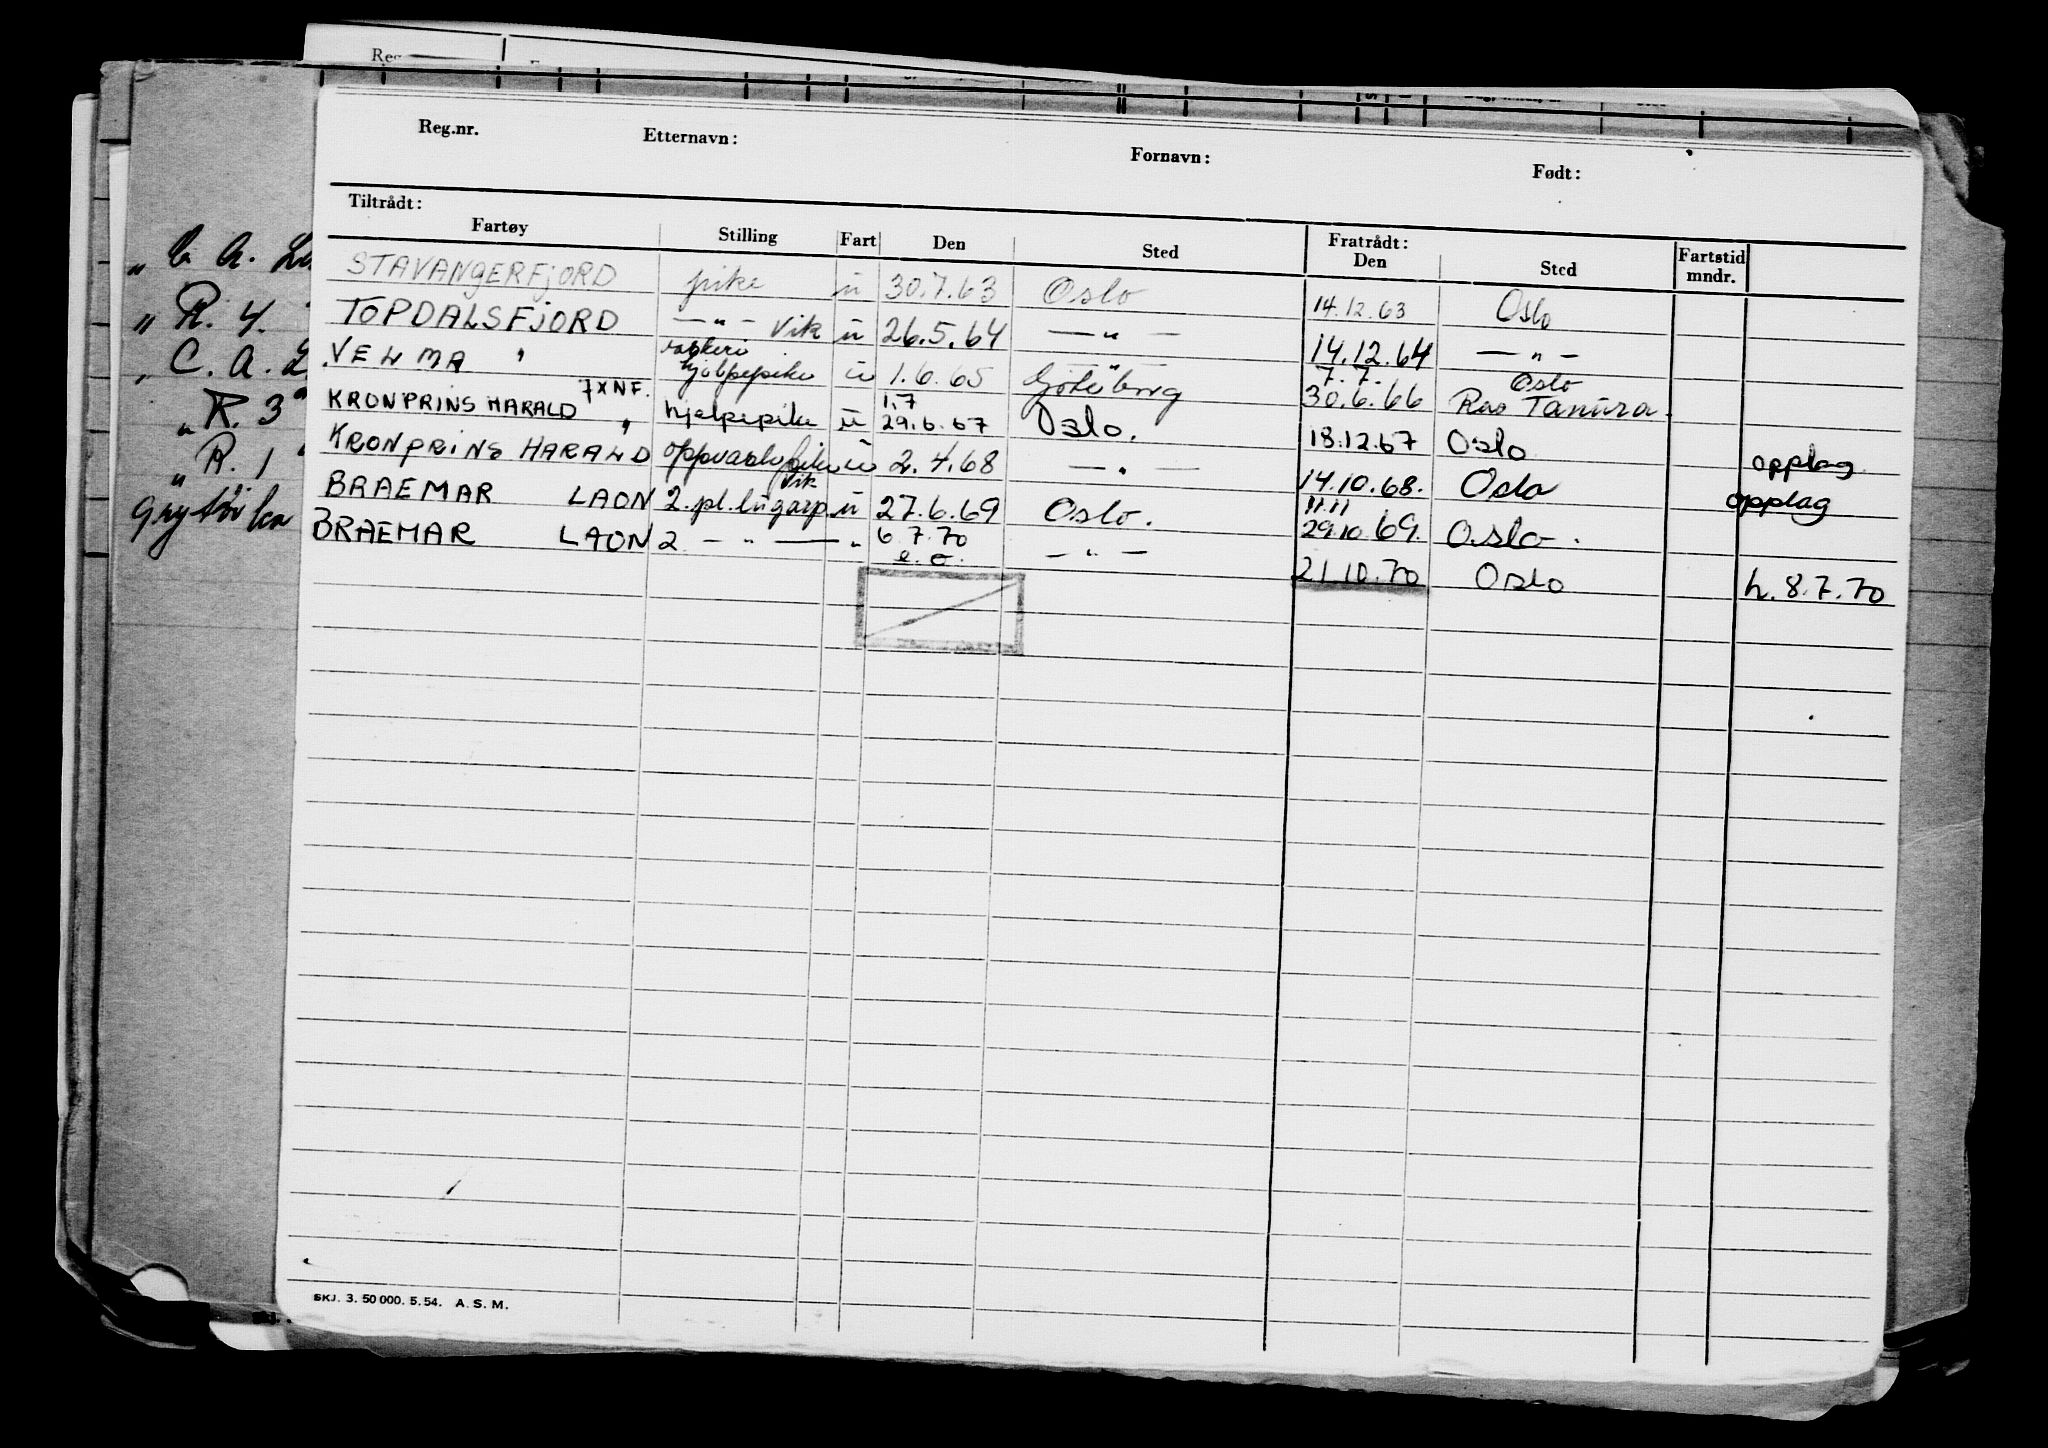 Reg.nr. Etternavn: Fornavn: Født:
Tiltrådt: Fratrådt:
Fartøy Stilling Fart Den Sted Den Sted Fartstid mndr.
STAVANGERFJORD pike ü 30.7.63 Oslo 14.12.63 Oslo
TOPDALSFJORD — " — Vik ü 26.5.64 — " — 14.12.64 — " —
VELMA " hjelpepike ü 1.6.65 Göteborg 7.7. Oslo
30.6.66 Ras Tanura
KRONPRINS HARALD 7XNF. " hjelpepike ü 1.7 29.6.67 Oslo. 18.12.67 Oslo opplag
KRONPRINS HARALD ü 2.4.68 — " — 14.10.68. Oslo opplag
BRAEMAR LAON 2. pl. lugarp. Vik ü 27.6.69 Oslo. 11.11 29.10.69. Oslo.
BRAEMAR LAON 2 — " — " 6.7.70 e.o. — " — 21.10.70 Oslo h. 8.7.70
" C. A.
" R. 4.
" C. A. L
" R. 3
" R. 1
SKJ. 3. 50 000. 5. 54. A. S. M.